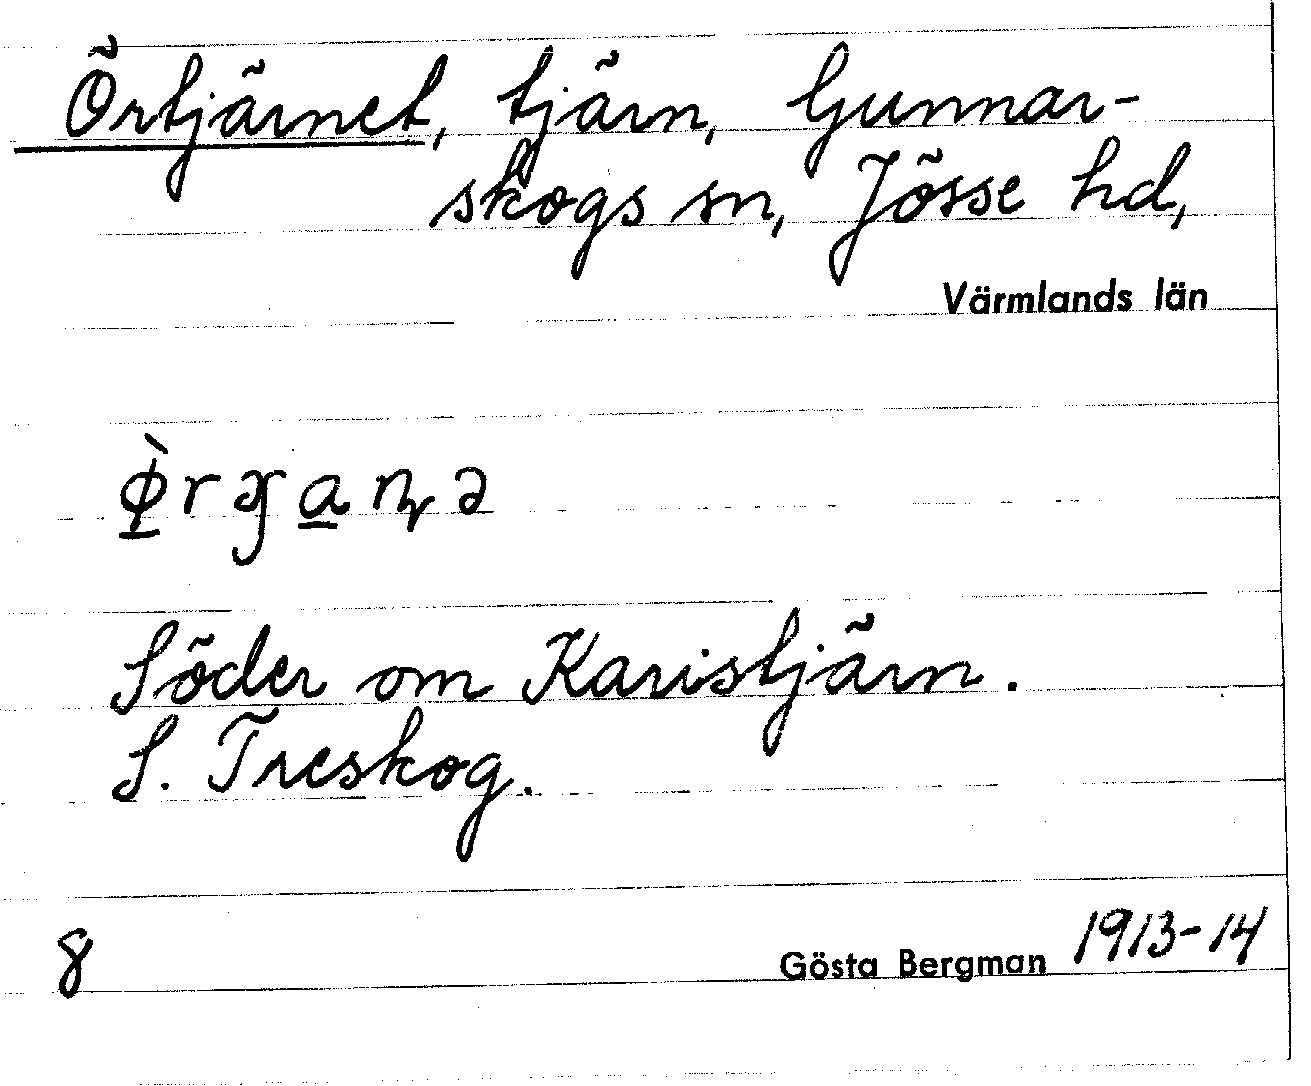 Örtjärnet, tjärn, Gunnar-
skogs sn, Jösse hd,
Värmlands län
Söder om Karistjärn.
S. Treskog.
8 Gösta Bergman 1913-14